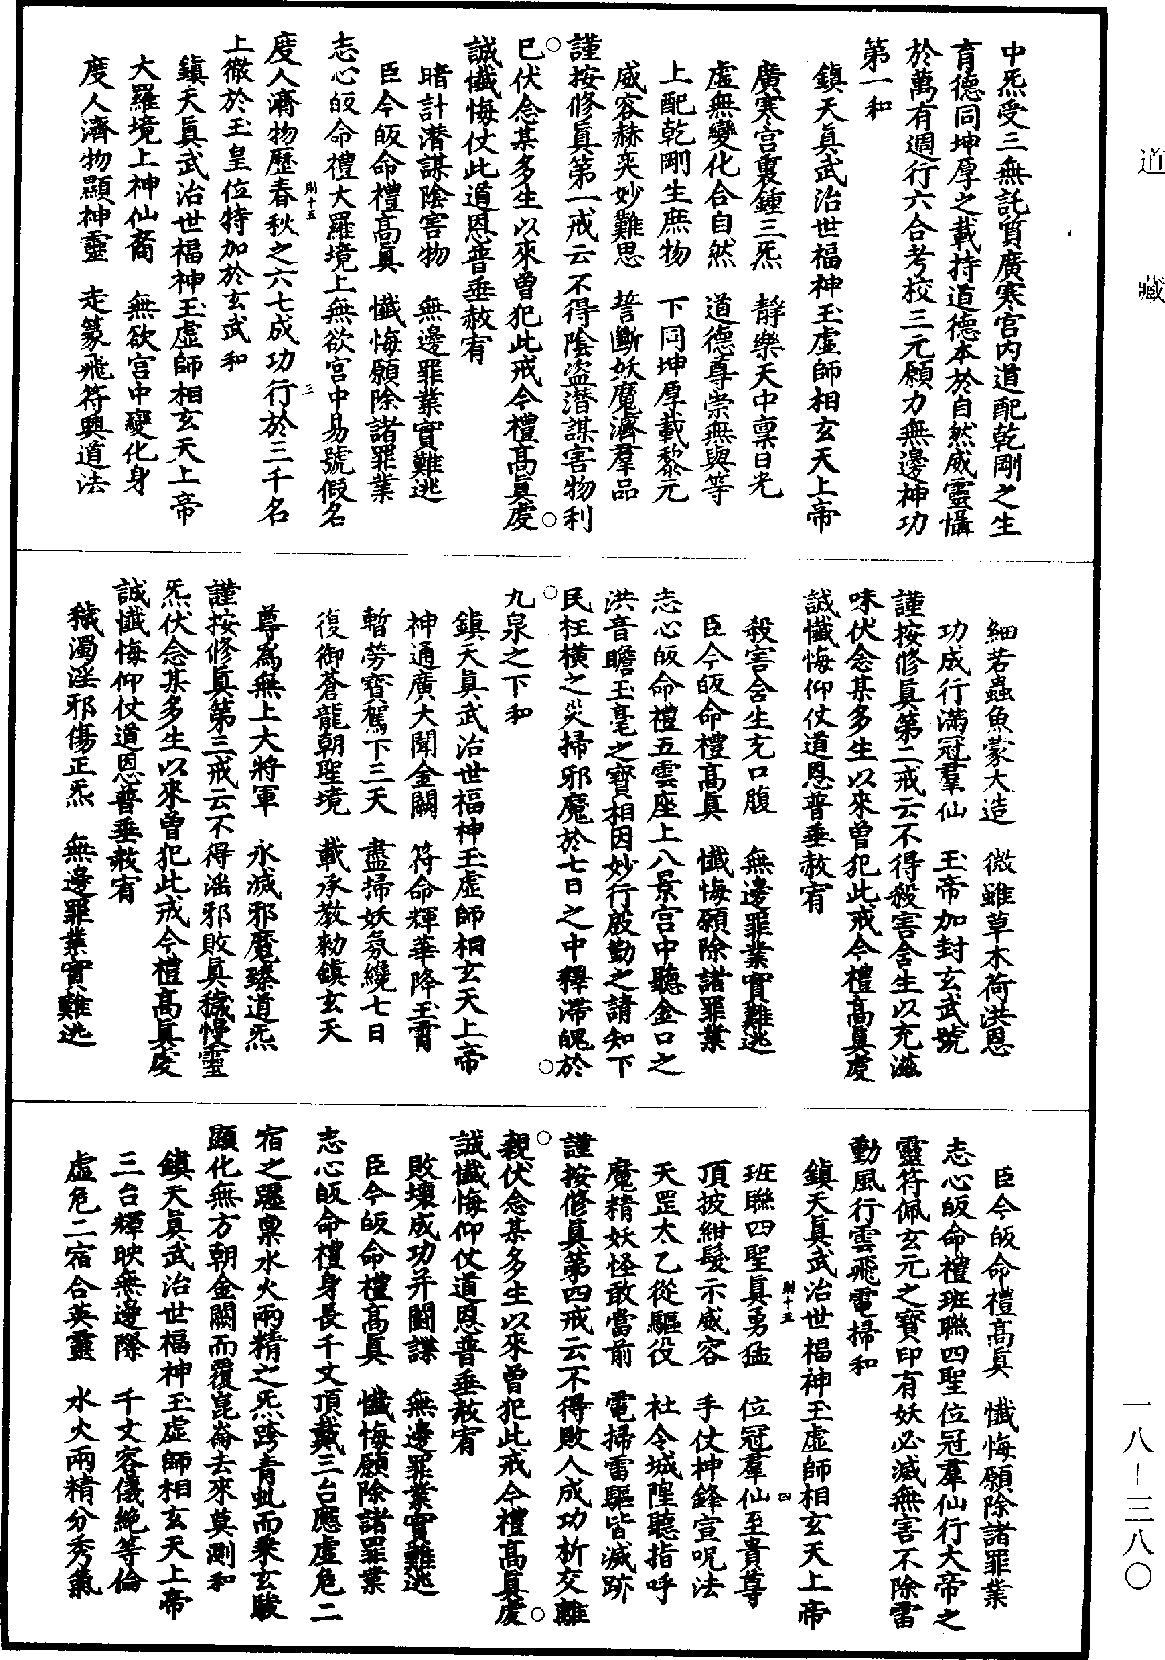 道藏
中炁受三無託質廣寒宮內道配乾剛之生
育德同坤厚之載持道德本於自然威靈懾
於萬有週行六合考校三元願力無邊神功
第一和
鎮天眞武治世福神玉虛師相玄天上帝
廣寒宮裏鍾三炁　靜樂天中稟日光
虛無變化合自然　道德尊崇無與等
上配乾剛生庶物　下同坤厚載黎元
威容赫奕妙難思　誓斷妖魔濟羣品
謹按修眞第一戒云不得陰盜潛謀害物利
已伏念某多生以來曾犯此戒今禮高眞虔
誠懺悔仗此道恩普垂赦宥
暗計潛謀陰害物　無邊罪業實難逃
臣今皈命禮高眞　懺悔願除諸罪業
志心皈命禮大羅境上無欲宮中易號假名
剛十五　三
度人濟物歷春秋之六七成功行於三千名
上徹於玉皇位特加於玄武和
鎮天眞武治世福神玉虛師相玄天上帝
大羅境上神仙裔　無欲宮中變化身
度人濟物顯神靈　走篆飛符興道法
細若蟲魚蒙大造　微雖草木荷洪恩
功成行滿冠羣仙　玉帝加封玄武號
謹按修眞第二戒云不得殺害含生以充滋
味伏念某多生以來曾犯此戒今禮高眞虔
誠懺悔仰仗道恩普垂赦宥
殺害含生充口腹　無邊罪業實難逃
臣今皈命禮高眞　懺悔願除諸罪業
志心皈命禮五雲座上八景宮中聽金口之
洪音瞻玉毫之寶相因妙行殷勤之請知下
民枉橫之災掃邪魔於七日之中釋滯魄於
九泉之下和
鎮天眞武治世福神玉虛師相玄天上帝
神通廣大聞金闕　符命輝華降玉霄
暫勞寶駕下三天　盡掃妖氛繞七日
復御蒼龍朝聖境　載承敎勑鎮玄天
尊爲無上大將軍　永滅邪魔臻道炁
謹按修眞第三戒云不得滛邪敗眞穢慢靈
炁伏念某多生以來曾犯此戒今禮高眞虔
誠懺悔仰仗道恩普垂赦宥
穢濁淫邪傷正炁　無邊罪業實難逃
臣今皈命禮高眞　懺悔願除諸罪業
志心皈命禮班聯四聖位冠羣仙行大帝之
靈符佩玄元之寶印有妖必滅無害不除雷
動風行雲飛電掃和
鎮天眞武治世福神玉虛師相玄天上帝
剛十五　四
班聯四聖眞勇猛　位冠羣仙至貴尊
頂披紺髮示威容　手仗神鋒宣呪法
天罡太乙從驅役　社令城隍聽指呼
魔精妖怪敢當前　電掃雷驅皆滅跡
謹按修眞第四戒云不得敗人成功析交離
親伏念某多生以來曾犯此戒今禮高眞虔
誠懺悔仰仗道恩普垂赦宥
敗壞成功并鬪諜　無邊罪業實難逃
臣今皈命禮高眞　懺悔願除諸罪業
志心皈命禮身長千丈頂戴三台應虛危二
宿之躔稟水火兩精之炁跨青虬而乘玄駿
顯化無方朝金闕而覆崑崙去來莫測和
鎮天眞武治世福神玉虛師相玄天上帝
三台輝映無邊際　千丈容儀絶等倫
虛危二宿合英靈　水火兩精分秀氣
一八—三八〇